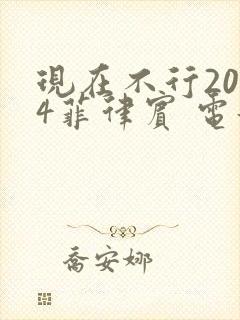 現在不行20
4菲律賓 電
喬安娜